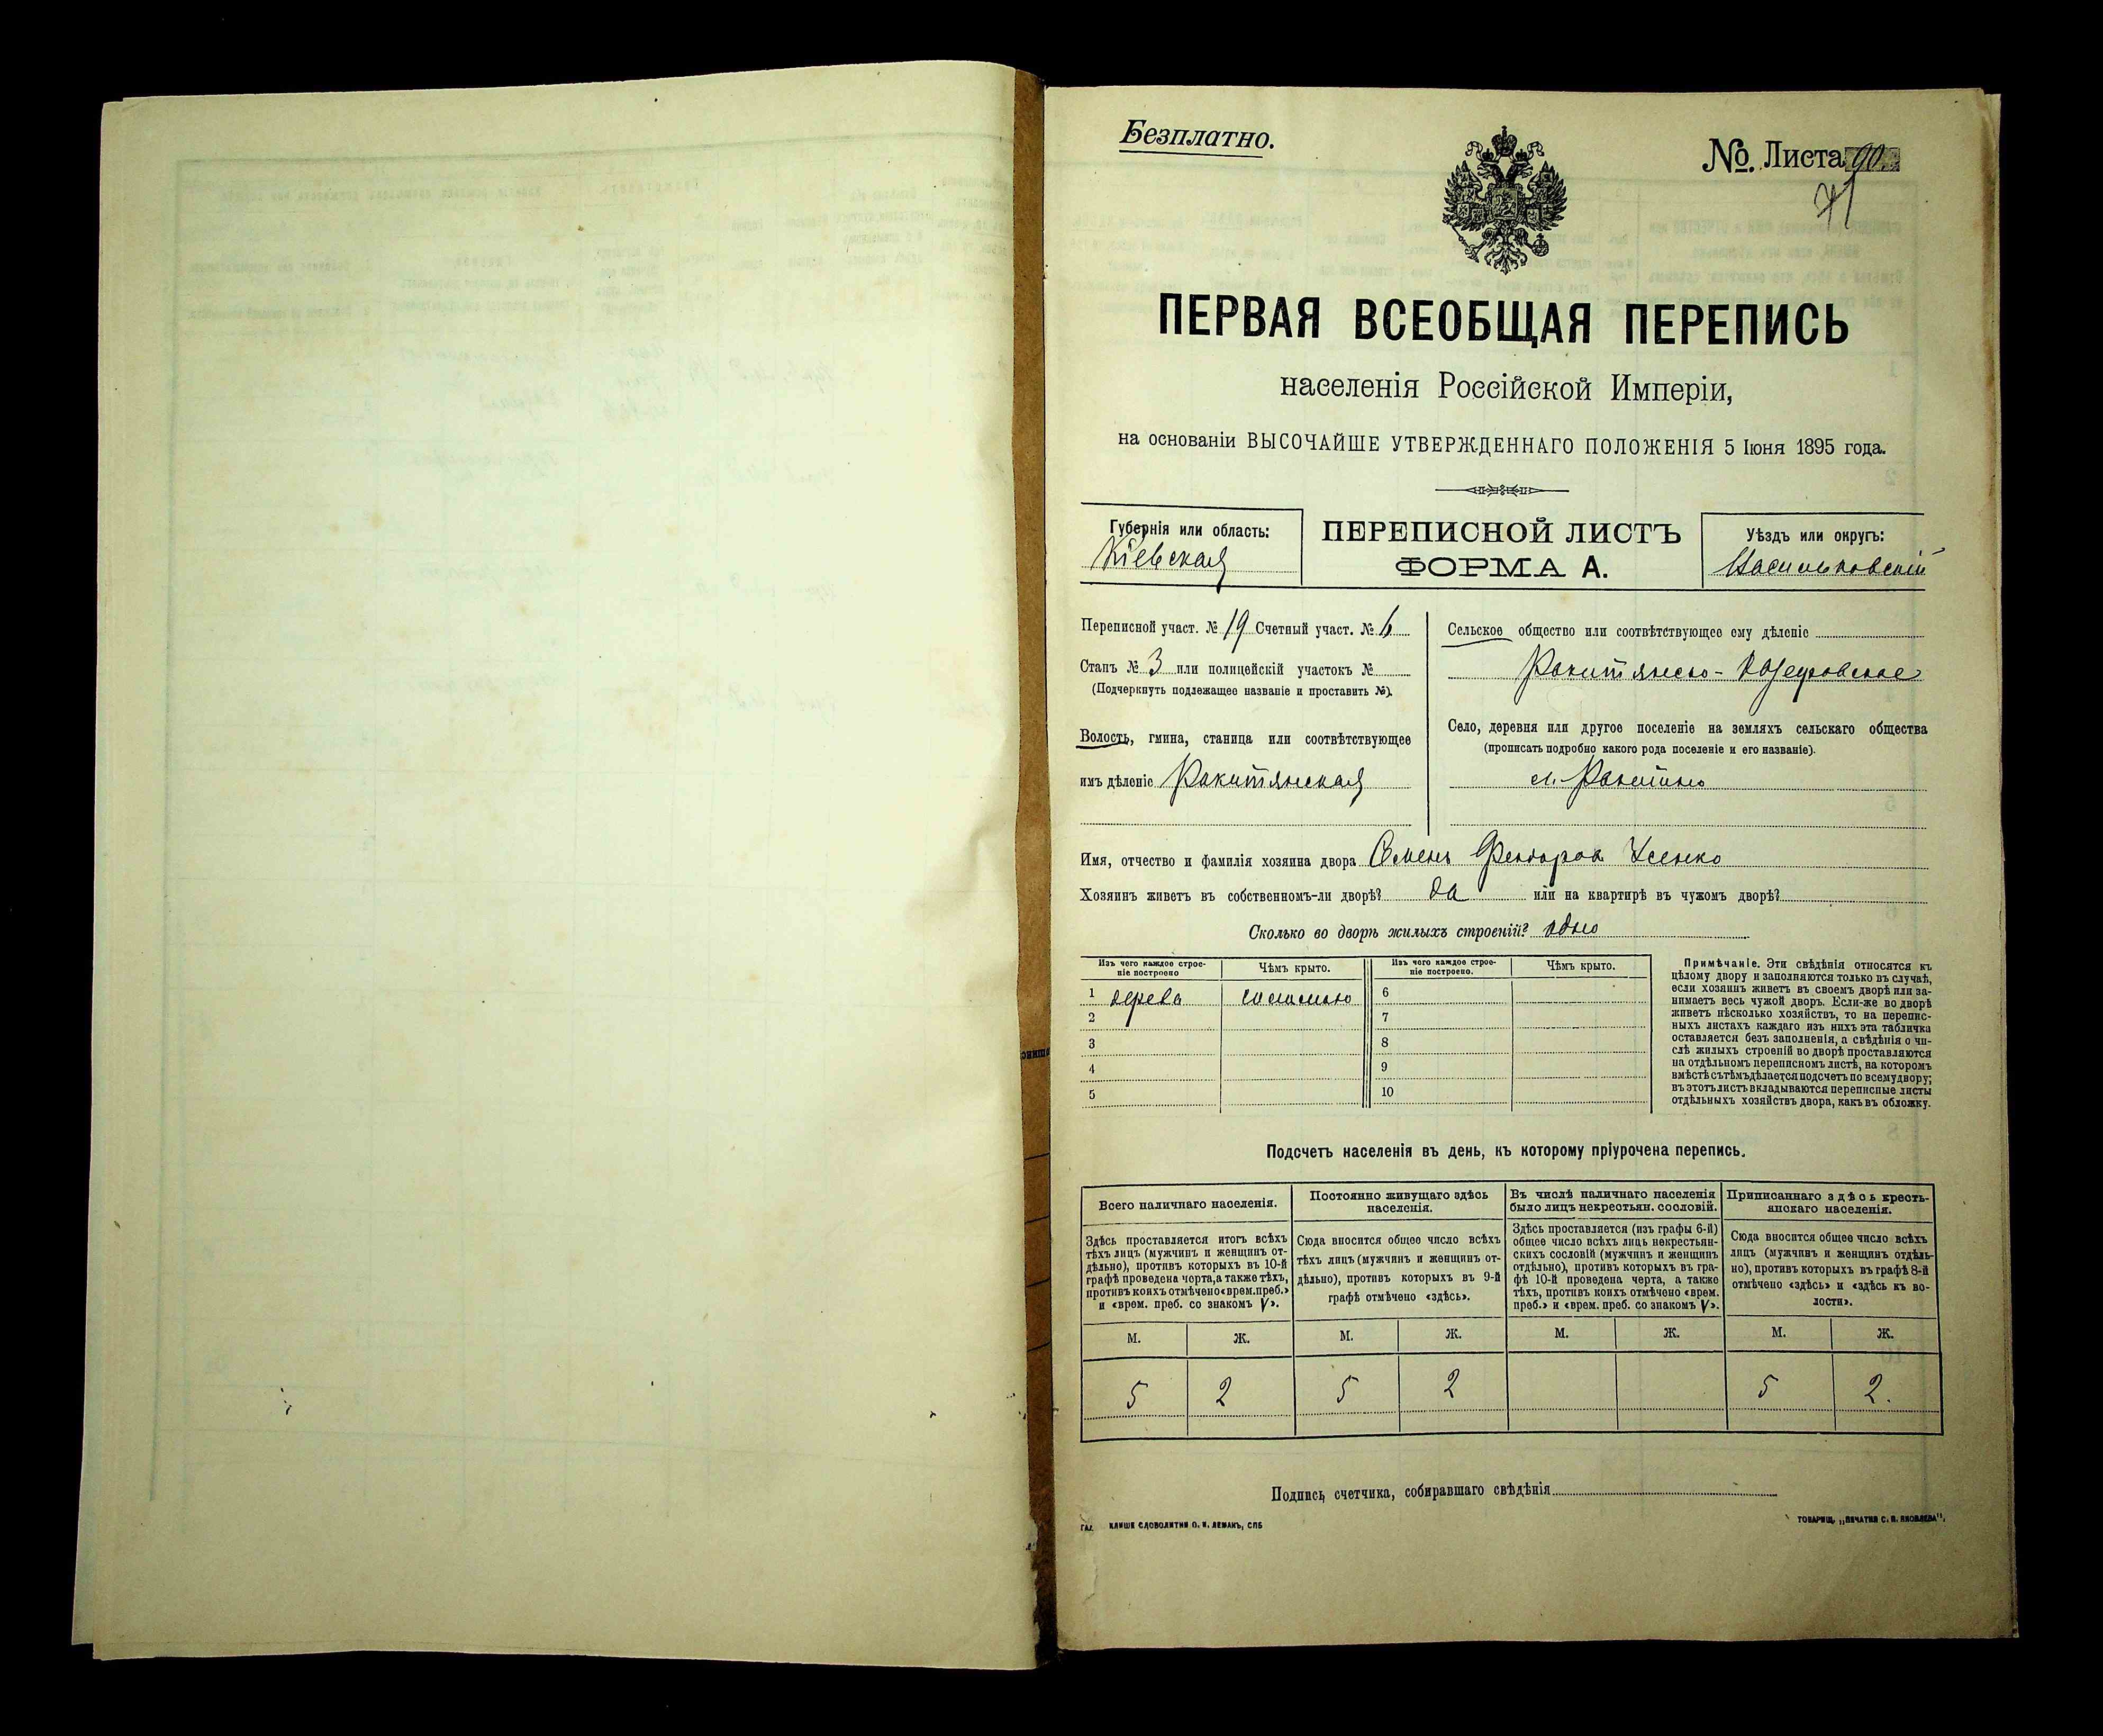 Безплатно.
№. Листа 90.
ПЕРВАЯ ВСЕОБЩАЯ ПЕРЕПИСЬ
населенія Россійской Имперіи,
на основаніи ВЫСОЧАЙШЕ УТВЕРЖДЕННАГО ПОЛОЖЕНІЯ 5 Іюня 1895 года.
Губернія или область:
Кіевская
ПЕРЕПИСНОЙ ЛИСТЪ
ФОРМА А.
Уѣздъ или округъ:
Васильковскій
Переписной участ. № 19 Счетный участ. № 6
Станъ № 3 или полицейскій участокъ №
(Подчеркнуть подлежащее названіе и проставить №).
Волость, гмина, станица или соотвѣтствующее
имъ дѣленіе Ракитянская
Сельское общество или соотвѣтствующее ему дѣленіе
Ракитянско-
Село, деревня или другое поселеніе на земляхъ сельскаго общества
(прописать подробно какого рода поселеніе и его названіе).
м. Ракитно
Имя, отчество и фамилія хозяина двора Семенъ Федоровъ Усенко
Хозяинъ живетъ въ собственномъ-ли дворѣ? да или на квартирѣ въ чужомъ дворѣ?
Сколько во дворѣ жилыхъ строеній? одно
Изъ чего каждое строе-
ніе построено
Чѣмъ крыто.
Изъ чего каждое строе-
ніе построено.
Чѣмъ крыто.
1 дерева соломою 6
2 7
3 8
4 9
5 10
Примѣчаніе. Эти свѣдѣнія относятся къ
цѣлому двору и заполняются только въ случаѣ,
если хозяинъ живетъ въ своемъ дворѣ или за-
нимаетъ весь чужой дворъ. Если-же во дворѣ
живетъ нѣсколько хозяйствъ, то на перепис-
ныхъ листахъ каждаго изъ нихъ эта табличка
оставляется безъ заполненія, а свѣдѣнія о чи-
слѣ жилыхъ строеній во дворѣ проставляются
на отдѣльномъ переписномъ листѣ, на которомъ
вмѣстѣ съ тѣмъ дѣлается подсчетъ по всему двору;
въ этотъ листъ вкладываются переписные листы
отдѣльныхъ хозяйствъ двора, какъ въ обложку.
Подсчетъ населенія въ день, къ которому пріурочена перепись.
Всего наличнаго населенія.
Здѣсь проставляется итогъ всѣхъ
тѣхъ лицъ (мужчинъ и женщинъ от-
дѣльно), противъ которыхъ въ 10-й
графѣ проведена черта, а также тѣхъ,
противъ коихъ отмѣчено «врем. преб.»
и «врем. преб. со знакомъ V».
Постоянно живущаго здѣсь
населенія.
Сюда вносится общее число всѣхъ
тѣхъ лицъ (мужчинъ и женщинъ от-
дѣльно), противъ которыхъ въ 9-й
графѣ отмѣчено «здѣсь».
Въ числѣ наличнаго населенія
было лицъ некрестьян. сословій.
Здѣсь проставляется (изъ графы 6-й)
общее число всѣхъ лицъ некрестьян-
скихъ сословій (мужчинъ и женщинъ
отдѣльно), противъ которыхъ въ гра-
фѣ 10-й проведена черта, а также
тѣхъ, противъ коихъ отмѣчено «врем.
преб.» и «врем. преб. со знакомъ V».
Приписаннаго здѣсь кресть-
янскаго населенія.
Сюда вносится общее число всѣхъ
лицъ (мужчинъ и женщинъ отдѣль-
но), противъ которыхъ въ графѣ 8-й
отмѣчено «здѣсь» и «здѣсь къ во-
лости».
М. Ж. М. Ж. М. Ж. М. Ж.
5 2 5 2 5 2.
Подпись счетчика, собиравшаго свѣдѣнія
КЛИШЕ СЛОВОЛИТНИ О. И. ЛЕМАНЪ, СПБ
ТОВАРИЩ. „ПЕЧАТНЯ С. П. ЯКОВЛЕВА".